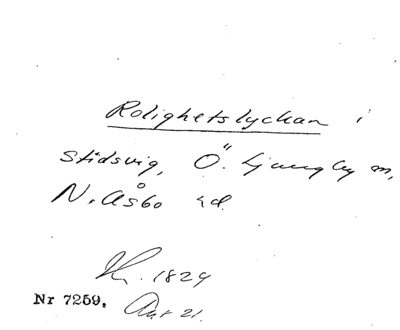 Rolighetslyckan i
Stidsvig, Ö. Ljungby m,
N. Åsbo hd.
1824
Nr 7259. Akt 21.